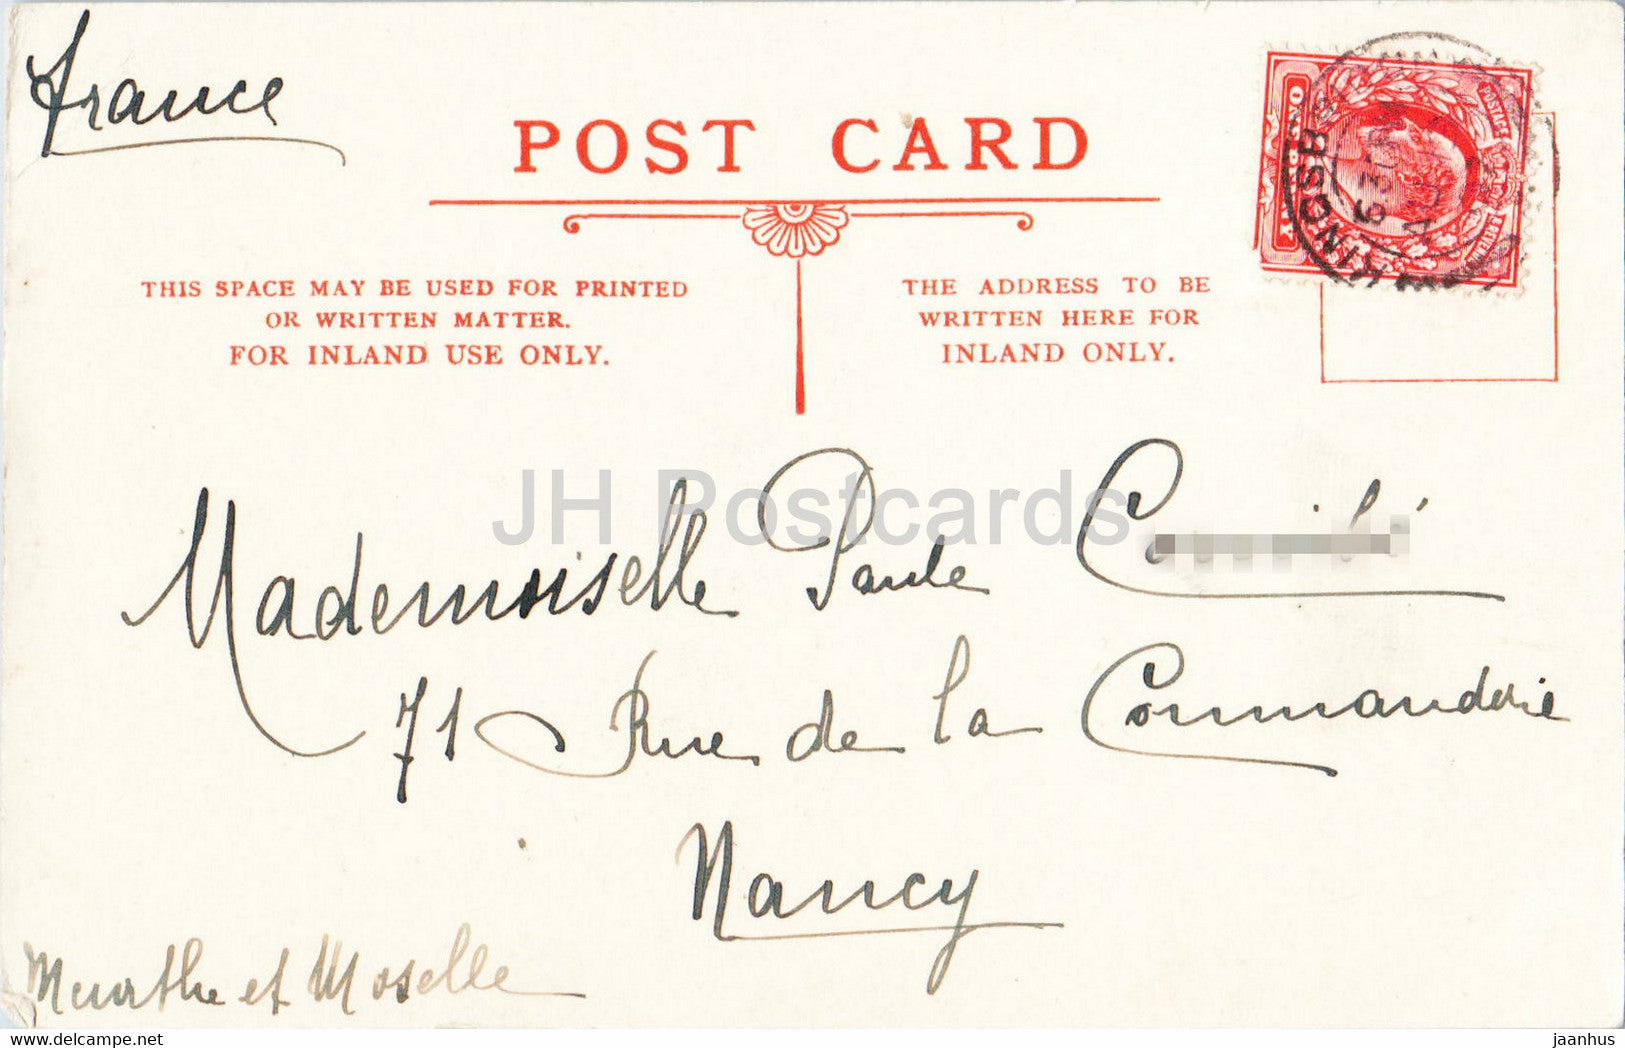 france
POST CARD
THIS SPACE MAY BE USED FOR PRINTED
OR WRITTEN MATTER.
FOR INLAND USE ONLY.
THE ADDRESS TO BE
WRITTEN HERE FOR
INLAND ONLY.
POSTAGE
KINGSB
JH Postcards
Mademoiselle Paule
71 Rue de la Commanderie
Nancy
Meurthe et Moselle
jaanhus